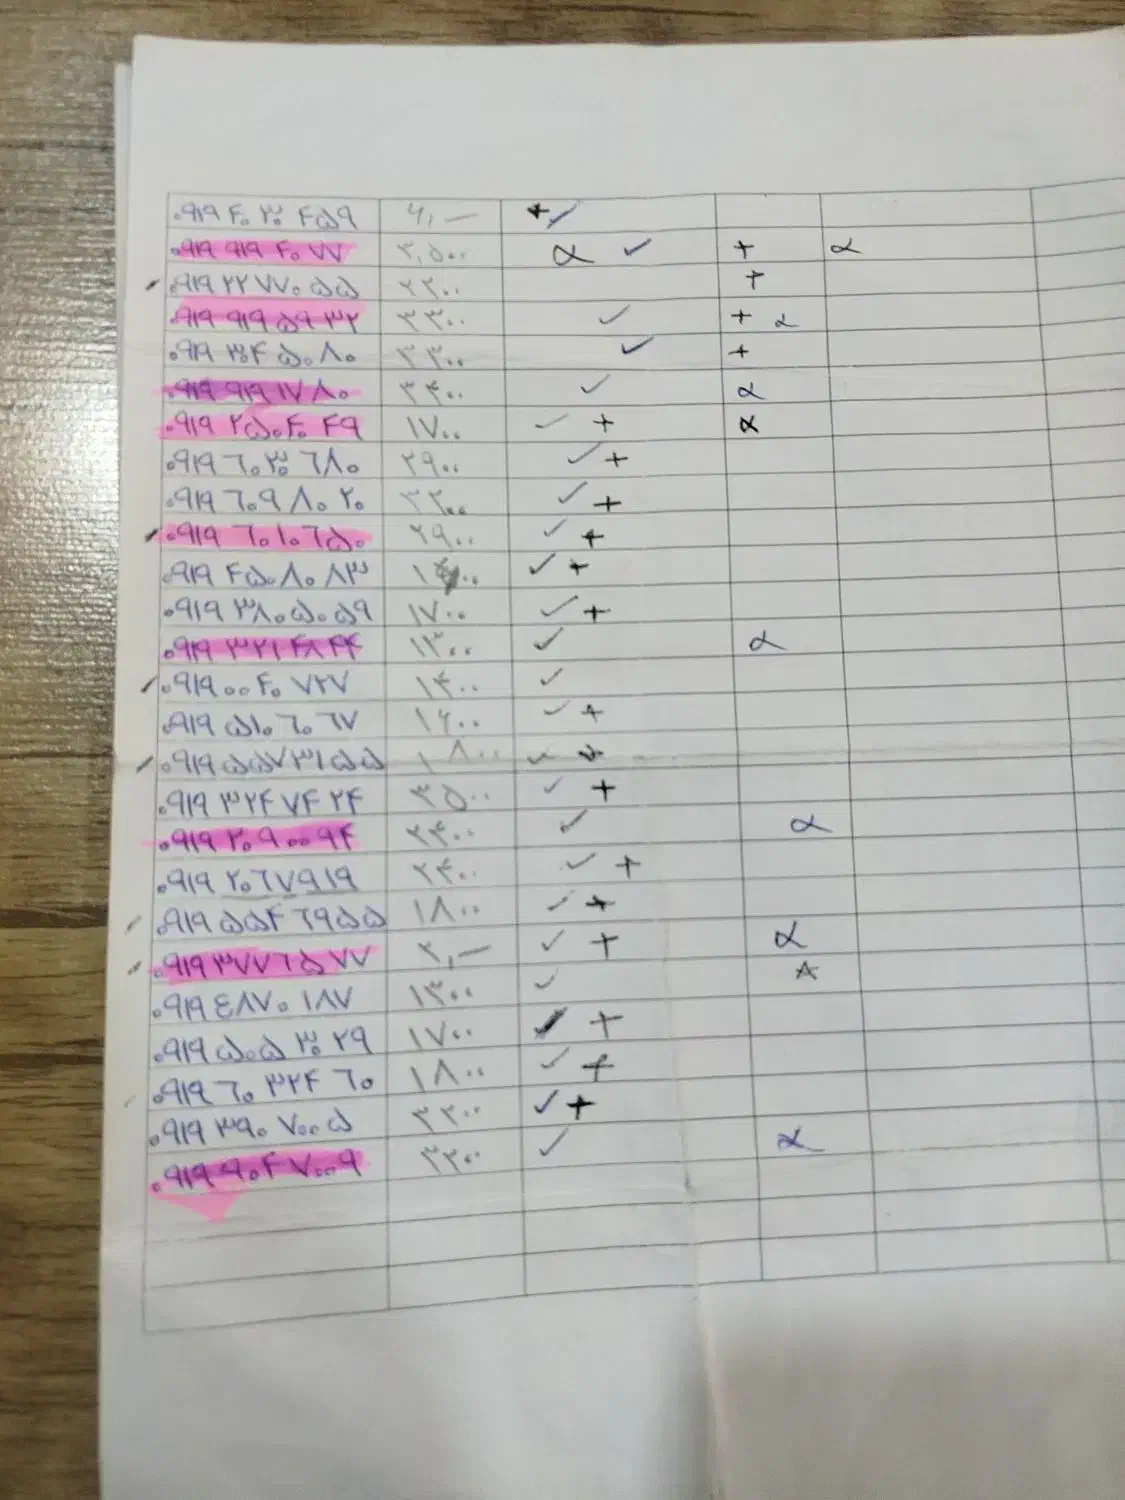 ۰۹۱۹ ۴۰ ۳۰ ۴۵۹ ۶,— +✓
۰۹۱۹ ۹۱۹ ۴۰ ۷۷ ۳,۵۰۰ α ✓ + α
۰۹۱۹ ۲۲ ۷۷۰ ۵۵ ۲۳۰۰ +
۰۹۱۹ ۹۱۹ ۵۹ ۳۲ ۳۳۰۰ ✓ + α
۰۹۱۹ ۳۰۴ ۵۰ ۸۰ ۳۳۰۰ ✓ +
۰۹۱۹ ۹۱۹ ۱۷ ۸۰ ۳۴۰۰ ✓ α
۰۹۱۹ ۲۵۰ ۴۰ ۴۹ ۱۷۰۰ ✓ + α
۰۹۱۹ ۶۰ ۳۰ ۶۸۰ ۲۹۰۰ ✓ +
۰۹۱۹ ۶۰۹ ۸۰ ۲۰ ۳۲۰۰ ✓ +
۰۹۱۹ ۶۰ ۱۰ ۶۵۰ ۲۹۰۰ ✓ +
۰۹۱۹ ۴۵۰ ۸۰ ۸۳ ✓ +
۰۹۱۹ ۳۸۰ ۵۰ ۵۹ ۱۷۰۰ ✓ +
۰۹۱۹ ۳۲۱ ۴۸ ۴۴ ۱۳۰۰ ✓ α
۰۹۱۹ ۰۰ ۴۰ ۷۲۷ ۱۴۰۰ ✓
۰۹۱۹ ۵۱۰ ۶۰ ۶۷ ۱۶۰۰ ✓ +
۰۹۱۹ ۵۵۷ ۳۱ ۵۵ ۱۸۰۰ ✓ +
۰۹۱۹ ۳۲۴ ۷۴ ۲۴ ۳۵۰۰ ✓ +
۰۹۱۹ ۲۰۹ ۰۰ ۹۴ ۲۴۰۰ ✓ α
۰۹۱۹ ۲۰۶۷۹۱۹ ۲۴۰۰ ✓ +
۰۹۱۹ ۵۵۴ ۶۹۵۵ ۱۸۰۰ ✓ +
۰۹۱۹ ۳۷۷ ۶۵ ۷۷ ۲,— ✓ + α
۰۹۱۹ ٤۸۷۰ ۱۸۷ ۱۳۰۰ ✓
۰۹۱۹ ۵۰۵ ۳۰ ۲۹ ۱۷۰۰ +
۰۹۱۹ ۶۰ ۳۲۴ ۶۰ ۱۸۰۰ ✓ +
۰۹۱۹ ۳۹۰ ۷۰۰۵ ۲۲۰۰ ✓ +
۰۹۱۹ ۹۰۴ ۷۰۰۹ ۳۲۰۰ ✓ α